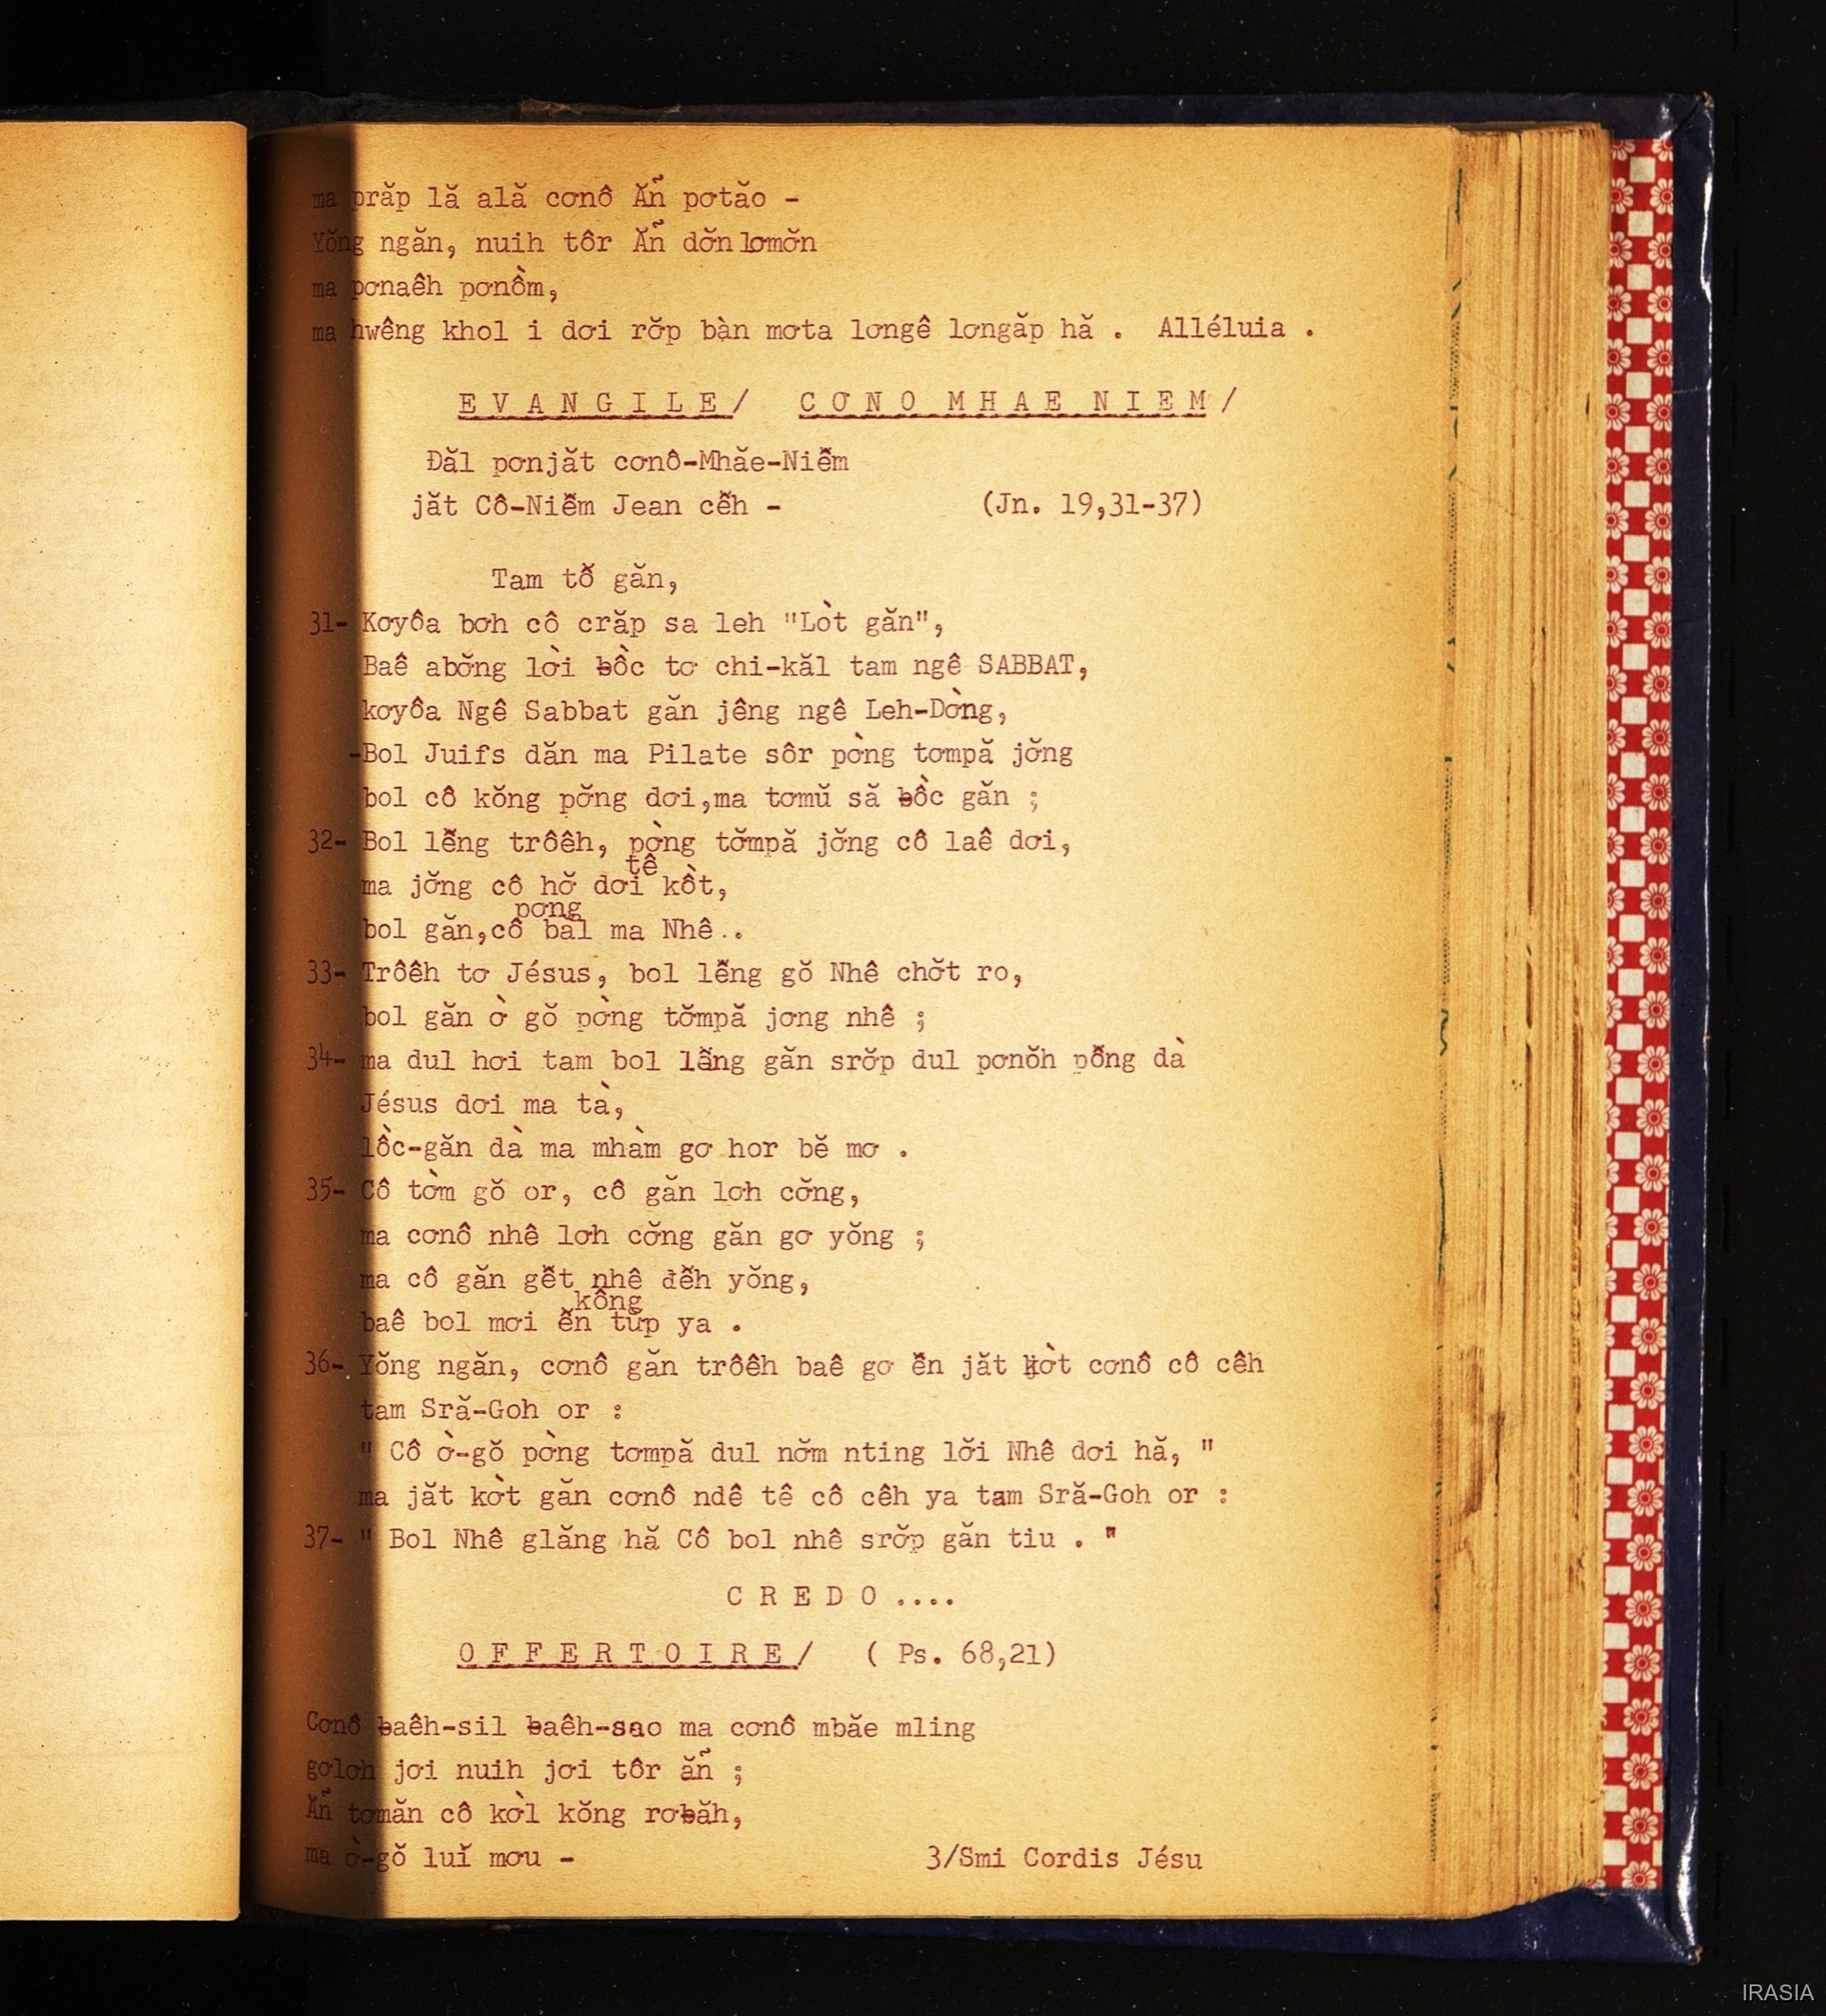 ma prăp lă ală cơnô Ăñ pơtăo -
Yŏng ngăn, nuih tôr Ăñ dơ̆n lơmơ̆n
ma pơnaêh pơnồm,
ma hwêng khol i dơi rơ̆p bàn mơta lơngê lơngăp hă . Alléluia .
E V A N G I L E / C Ơ N O M H A E N I E M /
Đăl pơnjăt cơnô-Mhăe-Niê̆m
jăt Cô-Niê̆m Jean cê̆h - (Jn. 19,31-37)
Tam tô̆ găn,
31- Kơyôa bơh cô crăp sa leh "Lòt găn",
Baê abơ̆ng lời ƀồc tơ chi-kăl tam ngê SABBAT,
kơyôa Ngê Sabbat găn jêng ngê Leh-Dờng,
-Bol Juifs dăn ma Pilate sôr pờng tơmpă jơ̆ng
bol cô kŏng pơ̆ng dơi,ma tơmŭ să ƀồc găn ;
32- Bol lê̆ng trôêh, pờng tơ̆mpă jơ̆ng cô laê dơi,
tê
ma jơ̆ng cô hơ̆ dơi kồt,
pơng
bol găn,cô băl ma Nhê..
33- Trôêh tơ Jésus, bol lê̆ng gŏ Nhê chơ̆t ro,
bol găn ờ gŏ pờng tơ̆mpă jơng nhê ;
34- ma dul hơi tam bol lê̆ng găn srơ̆p dul pơnŏh pô̆ng dà
Jésus dơi ma tà,
lồc-găn dà ma mhàm gơ hor bĕ mơ .
35- Cô tờm gŏ or, cô găn lơh cơ̆ng,
ma cơnô nhê lơh cơ̆ng găn gơ yŏng ;
ma cô găn gê̆t nhê đê̆h yŏng,
kông
baê bol mơi ê̆n tŭp ya .
36- Yŏng ngăn, cơnô găn trôêh baê gơ ê̆n jăt kờt cơnô cô cêh
tam Sră-Goh or :
" Cô ờ-gŏ pờng tơmpă dul nơ̆m nting lơ̆i Nhê dơi hă, "
ma jăt kờt găn cơnô ndê tê cô cêh ya tam Sră-Goh or :
37- " Bol Nhê glăng hă Cô bol nhê srơ̆p găn tiu . "
C R E D O ....
O F F E R T O I R E / ( Ps. 68,21)
Cơnô ƀaêh-sil ƀaêh-sao ma cơnô mbăe mling
gơlơh jơi nuih jơi tôr ăñ ;
Ăñ tơmăn cô kờl kŏng rơƀăh,
ma ờ-gŏ luĭ mơu - 3/Smi Cordis Jésu
IRASIA